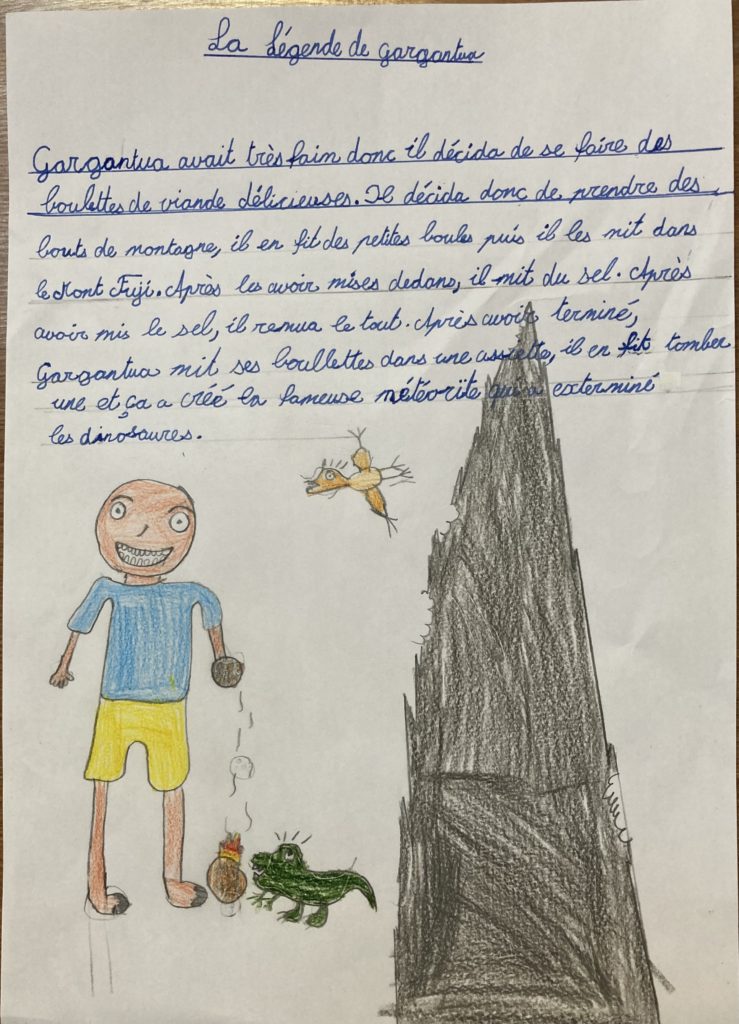 La légende de gargantua
Gargantua avait très faim donc il décida de se faire des
boulettes de viande délicieuses. Il décida donc de prendre des
bouts de montagne, il en fit des petites boules puis il les mit dans
le Mont Fuji. Après les avoir mises dedans, il mit du sel. Après
avoir mis le sel, il remua le tout. Après avoir terminé,
Gargantua mit ses boullettes dans une assiette, il en fit tomber
une et ça a créé la fameuse météorite qui a exterminé
les dinosaures.